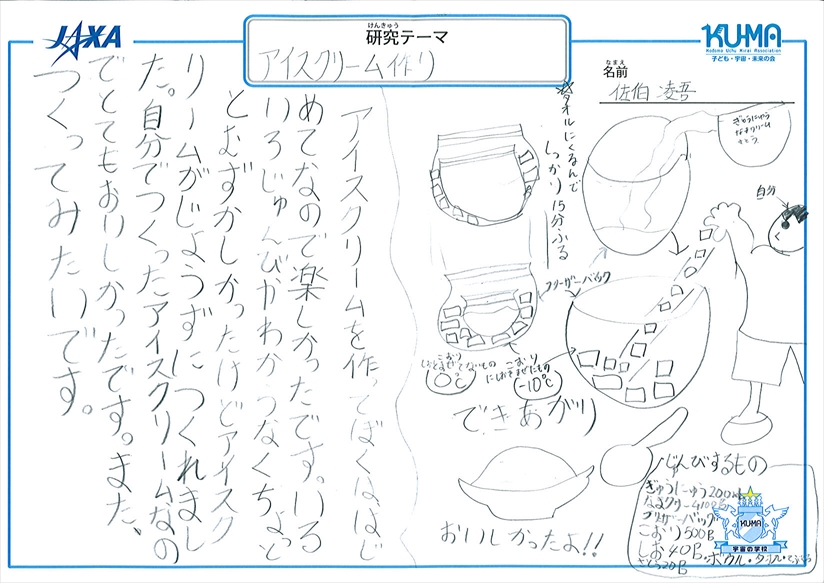 JAXA
けんきゅう
研究テーマ
アイスクリーム作り
KU-MA
Kodomo Uchu Mirai Association
子ども・宇宙・未来の会
なまえ
名前
佐伯 凌吾
アイスクリームを作ってぼくははじ
めてなので楽しかったです。いろ
いろじゅんびがわかつなくちょっ
とむずかしかったけどアイスク
リームがじょうずにつくれまし
た。自分でつくったアイスクリームなの
でとてもおいしかったです。また、
つくってみたいです。
タオルにくるんで
しっかり15分ふる
ぎゅうにゅう
なまクリーム
さとう
自分
フリーザーバック
こおり
しおとまぜてないもの
0℃
こおり
にしおをまぜたもの
-10℃
できあがり
おいしかったよ!!
じゅんびするもの
ぎゅうにゅう200ml
なまクリーム100
フリーザーバック
こおり500g
しお40g
さとう20g
ボウル・タオル・てぶくろ
KU-MA
宇宙の学校